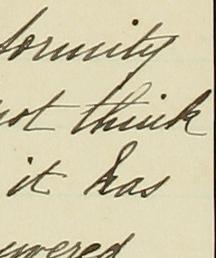 formity
not think
it has
uvered